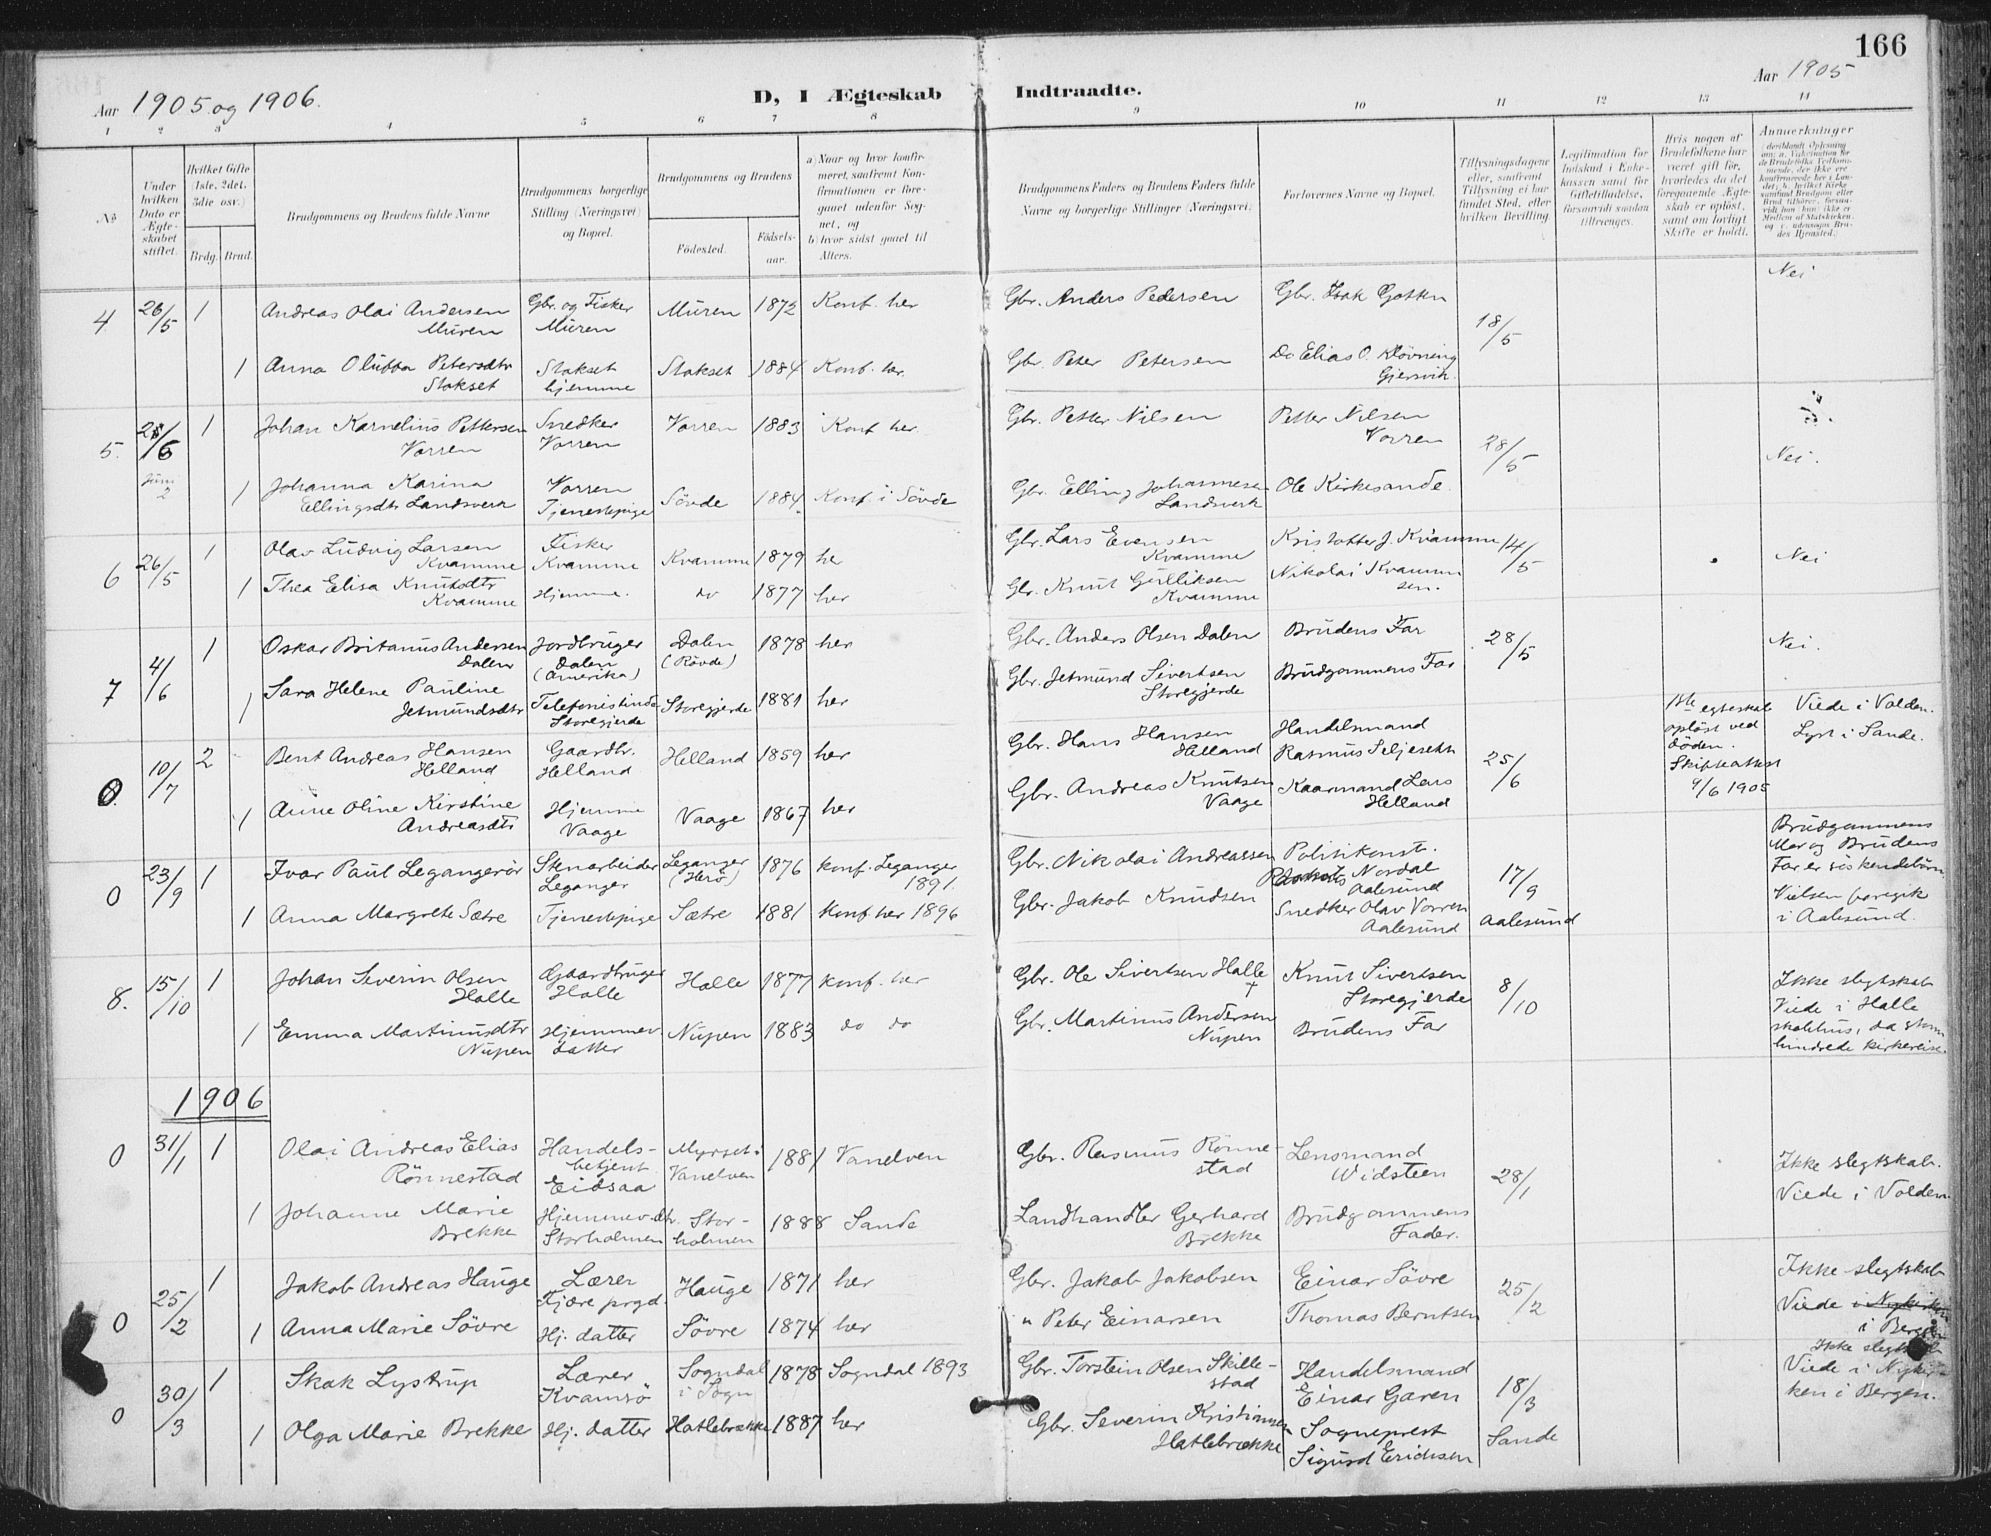 166
Aar 1905 og 1906.
D, I Ægteskab Indtraadte.
Aar 1905
1 2 3 4 5 6 7 8 9 10 11 12 13 14
No
Under hvilken Dato er Ægteskabet stiftet.
Hvilket Gifte (1ste, 2det, 3die osv.)
Brdg. Brud.
Brudgommens og Brudens fulde Navne
Brudgommens borgerlige Stilling (Næringsvei) og Bopæl.
Brudgommens og Brudens
Födested. Födselsaar.
a) Naar og hvor konfirmeret, saafremt Konfirmationen er foregaaet udenfor Sognet, og
b) hvor sidst gaaet til Alters.
Brudgommens Faders og Brudens Faders fulde Navne og borgerlige Stillinger (Næringsvei)
Forlovernes Navne og Bopæl.
Tillysningsdagene eller, saafremt Tillysning ei har fundet Sted, efter hvilken Bevilling.
Legitimation for Indskud i Enkekassen samt for Giftetilladelse, forsaavidt saadan tiltrænges.
Hvis nogen af Brudefolkene har været gift för, hvorledes da det foregaaende Ægteskab er oplöst, samt om lovligt Skifte er holdt.
Anmerkninger
4 26/5 1 Andreas Olai Andersen Muren Gbr. og Fisker Muren Muren 1872 Konf. her Gbr. Anders Pedersen Gbr. Isak Gotten 18/5 Nei
1 Anna Olubba Petersdtr Stokset Stokset hjemme Stokset 1884 Konf. her. Gbr. Peter Petersen Do Elias O. Kløvning Gjersvik.
5. 28/6 1 Johan Karnelius Pettersen Vorren Snedker Vorren Vorren 1883 Konf her. Gbr. Petter Nilsen Petter Nilsen Vorren 28/5 Nei.
Juni 2 1 Johanna Karina Ellingsdtr Landsverk Vorren Tjenestepige Sövde 1884 Konf. i Sövde Gbr. Elling Johannesen Landsverk Ole Kirkesande.
6 26/5 1 Olav Ludvig Larsen Kvamme Fisker Kvamme Kvamme 1879 her Gbr. Lars Evensen Kvamme Kristoffer J. Kvamme 14/5 Nei
1 Thea Elisa Knutsdtr Kvamme Hjemme. do 1877 her Gbr. Knut Gulliksen Kvamme Nikolai Kvammsen.
7 4/6 1 Oskar Britanus Andersen Dalen Jordbruger Dalen (Amerika) Dalen (Rövde) 1878 her Gbr. Anders Olsen Dalen Brudens Far 28/5 Nei.
1 Sara Helene Pauline Jetmundsdtr Telefonistinde Storegjerde Storegjerde 1881 her Gbr. Jetmund Sivertsen Storegjerde Brudgommens Far
0 10/7 2 Bent Andreas Hansen Helland Gaardbr. Helland Helland 1859 her Gbr. Hans Hansen Helland Handelsmand Rasmus Seljeseth 25/6 1ste egteskab opløst ved döden. Skifteattest 9/6 1905 Viede i Volden. Lyst i Sande.
1 Anne Oline Kirstine Andreasdtr Hjemme Vaage Vaage 1867 her Gbr. Andreas Knutsen Vaage Kaarmand Lars Helland
0 23/9 1 Ivar Paul Legangerör Stenarbeider Leganger Leganger (Herö) 1876 konf. Leganger 1891. Gbr. Nikolai Andreassen Politikonst. Nordal Aalesund 17/9 Brudgommens Mor og Brudens Far er söskendebörn
1 Anna Margrete Sætre Tjenestepige Sætre 1881 konf her 1896 Gbr. Jakob Knudsen Snedker Olav Vorren Aalesund Aalesund Vielsen foregik i Aalesund.
8. 15/10 1 Johan Severin Olsen Halle Gaardbruger Halle Halle 1877 konf. her Gbr. Ole Sivertsen Halle † Knut Sivertsen Storegjerde 8/10 Ikke slegtskab Viede i Halle skolehus, da storm hindrede kirkereise.
1 Emma Martinusdtr Nupen Hjemmev. datter Nupen 1883 do do Gbr. Martinus Andersen Nupen Brudens Far
1906
0 31/1 1 Olai Andreas Elias Rönnestad Handelsbetjent Eidsaa Myrset i Vanelven 1881 Vanelven Gbr. Rasmus Rönnestad Lensmand Widsteen 28/1 Ikke slegtskab. Viede i Volden
1 Johanne Marie Brekke Hjemmev. dtr. Storholmen Storholmen 1888 Sande Landhandler Gerhard Brekke Brudgommens Fader.
0 25/2 1 Jakob Andreas Hauge Lærer Fjære prgd. Hauge 1871 her Gbr. Jakob Jakobsen Einar Sövre 25/2 Ikke slegtskab Viede i Nykirken i Bergen
1 Anna Marie Sövre Hj. datter Sövre 1874 her " Peter Einarsen Thomas Berntsen
0 30/3 1 Skak Lystrup Lærer Kvamsö Sogndal i Sogn 1878 Sogndal 1893 Gbr. Torstein Olsen Skillestad Handelsmand Einar Garen 18/3 Ikke slegtskab Viede i Nykirken i Bergen.
1 Olga Marie Brekke Hj. datter Hatlebrække 1887 her Gbr. Severin Kristiansen Hatlebrække Sogneprest Sigurd Erichsen Sande